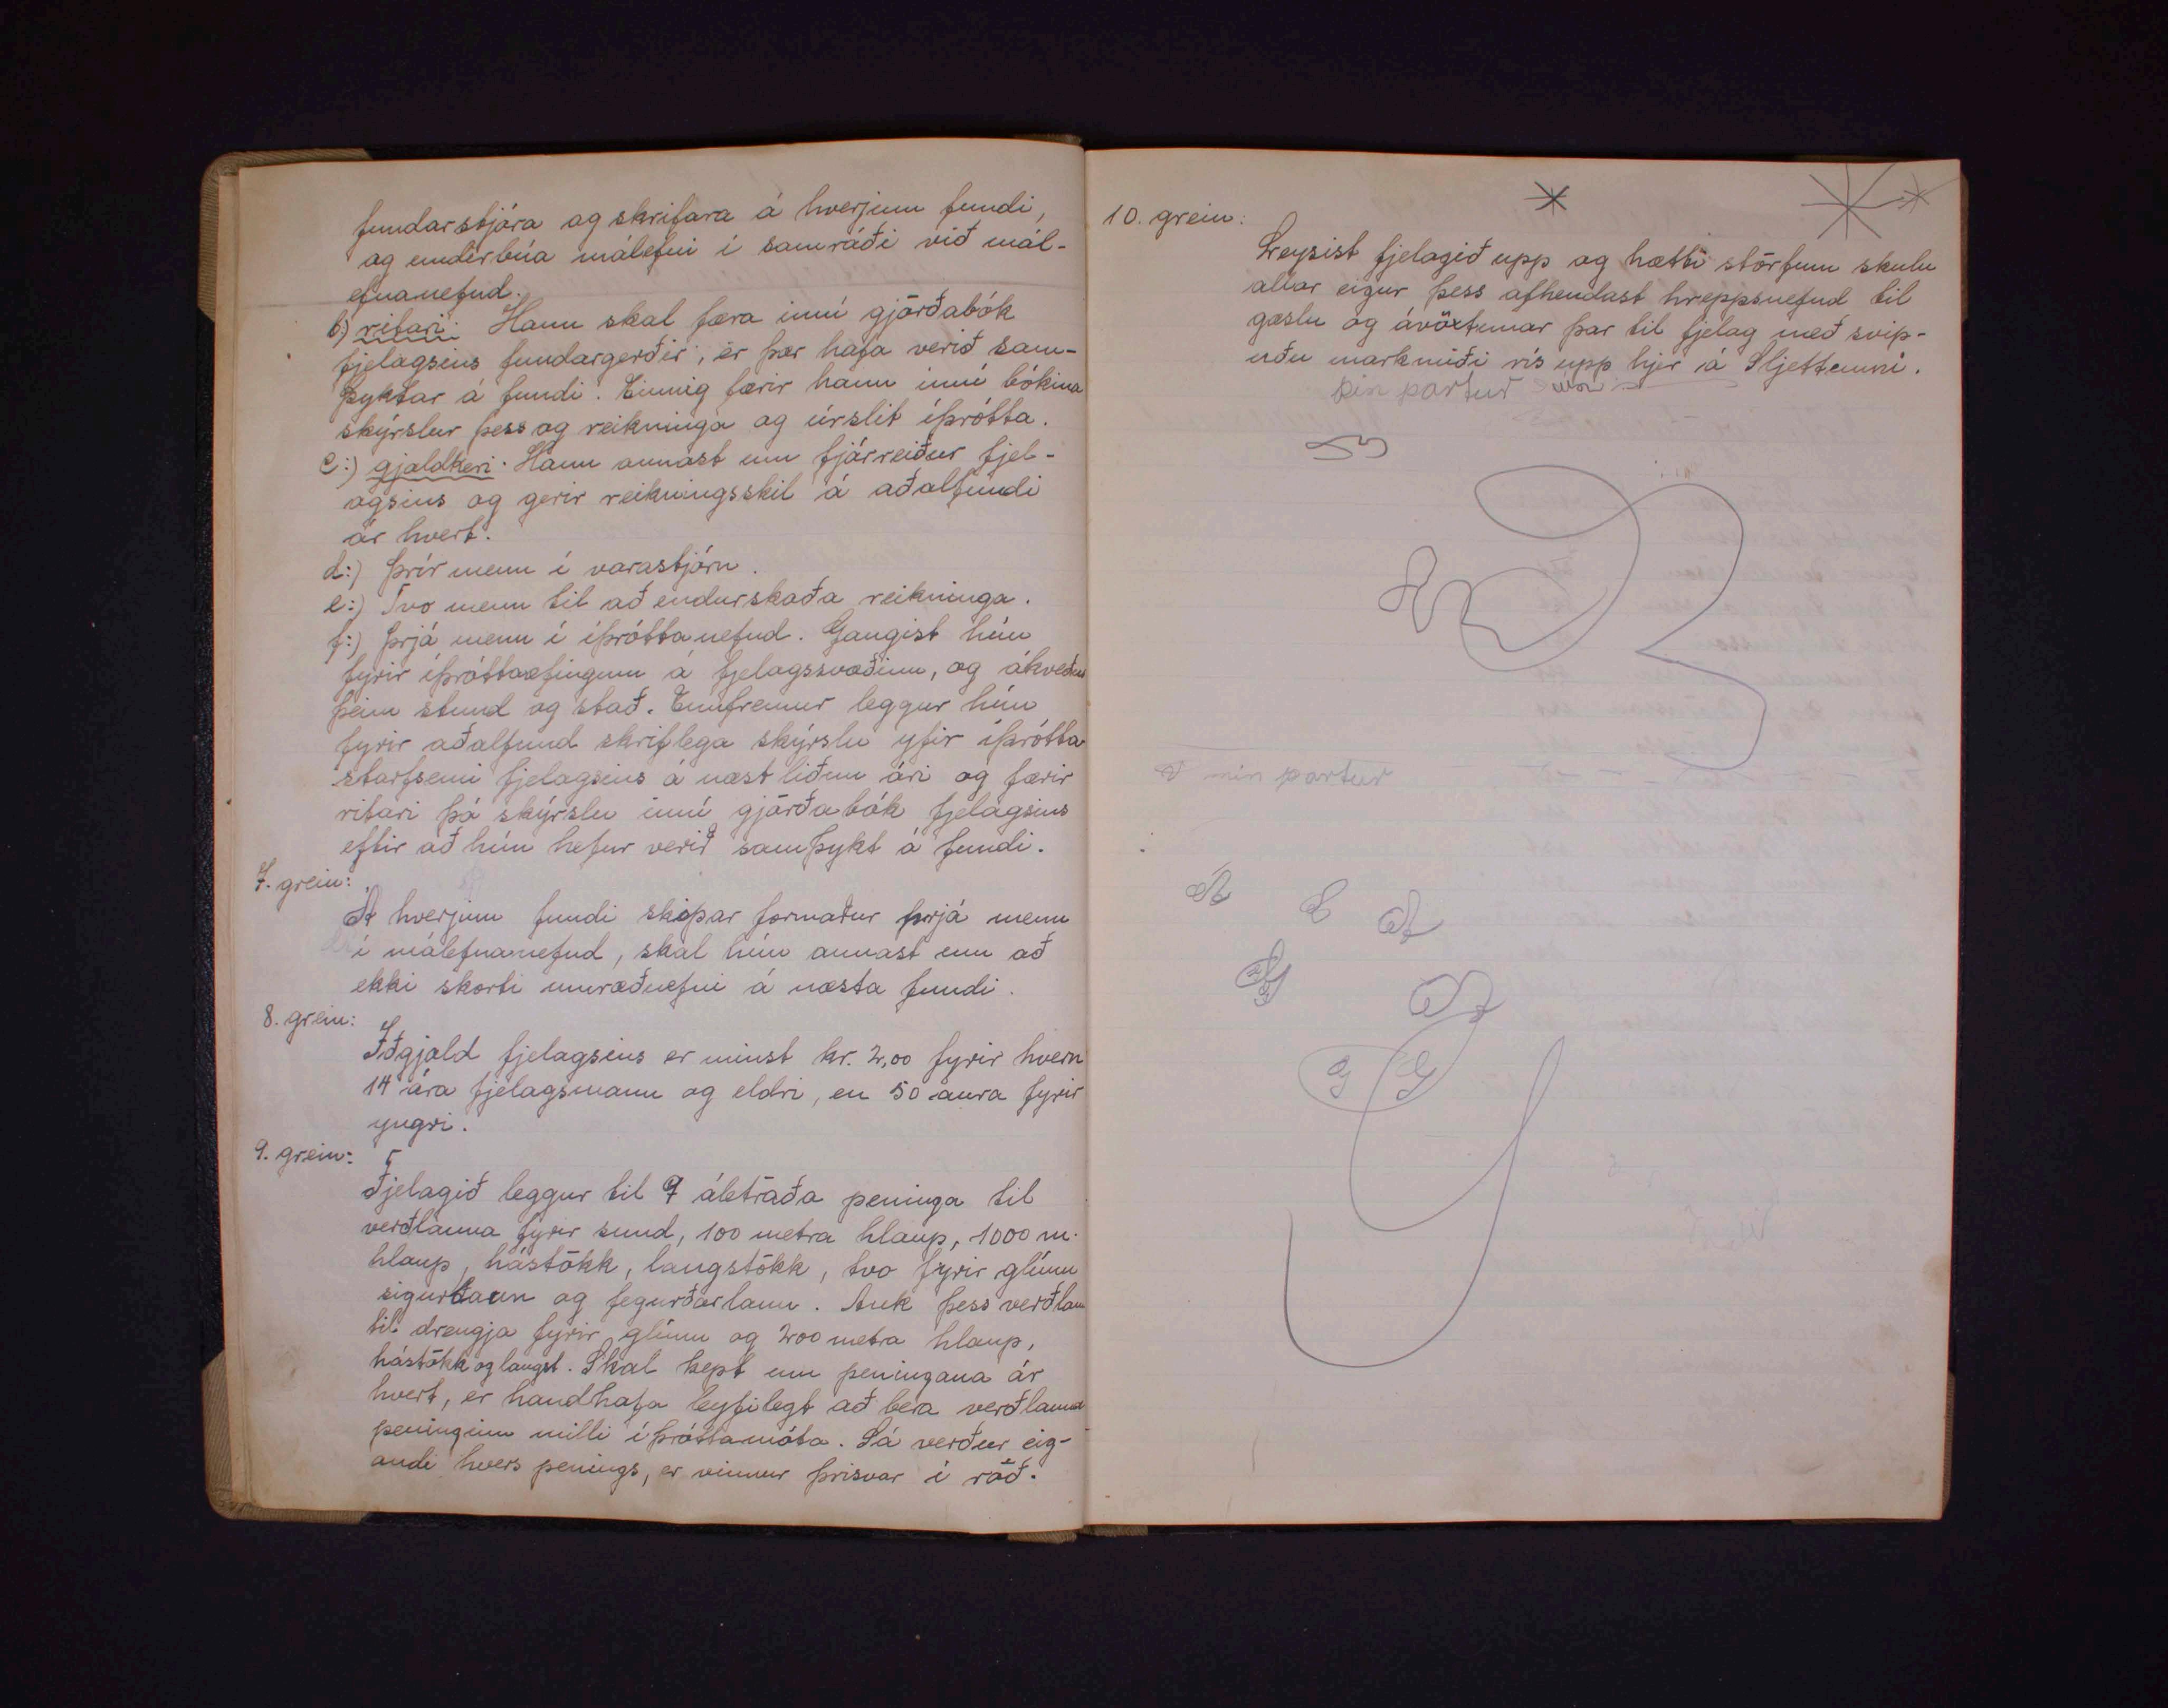 fundarstjóra og skrifara á hverjum fundi,
og undirbúa málefni í samráði við mál-
efnanefnd.
b:) ritari: Hann skal færa inní gjörðabók
fjelagsins fundargerðir, er þær hafa verið sam-
þyktar á fundi. Einnig færir hann inní bókina
skýrslur þess og reikninga og úrslit íþrótta.
c:) gjaldkeri: Hann annast um fjárreiður fjel-
agsins og gerir reikningsskil á aðalfundi
ár hvert.
d:) Þrír menn í varastjórn.
e:) Tvo menn til að endurskoða reikninga.
f:) Þrjá menn í íþróttanefnd. Gangist hún
fyrir íþróttaæfingum á fjelagssvæðinu, og ákveður
þeim stund og stað. Ennfremur leggur hún
fyrir aðalfund skriflega skýrslu yfir íþrótta
starfsemi fjelagsins á næstliðnu ári og færir
ritari þá skýrslu inní gjörðabók fjelagsins
eftir að hún hefur verið samþykt á fundi.
7. grein:
Á hverjum fundi skipar formaður þrjá menn
í málefnanefnd, skal hún annast um að
ekki skorti umræðuefni á næsta fundi.
8. grein:
Iðgjald fjelagsins er minst kr. 2,00 fyrir hvern
14 ára fjelagsmann og eldri, en 50 aura fyrir
yngri.
9. grein:
Fjelagið leggur til 9 áletraða peninga til
verðlauna fyrir sund, 100 metra hlaup, 1000 m.
hlaup, hástökk, langstökk, tvo fyrir glímu
sigurlaun og fegurðarlaun. Auk þess verðlaun
til drengja fyrir glímu og 200 metra hlaup,
hástökk og langst. Skal kept um peningana ár
hvert, er handhafa leyfilegt að bera verðlauna
peninginn milli íþróttamóta. Sá verður eig-
andi hvers penings, er vinnur þrisvar í röð.
10. grein:
Leysist fjelagið upp og hætti störfum skulu
allar eigur þess afhendast hreppsnefnd til
gæslu og ávöxtunar þar til fjelag með svip-
uðu markmiði rís upp hjer á Sljettunni.
þin partur
min partur